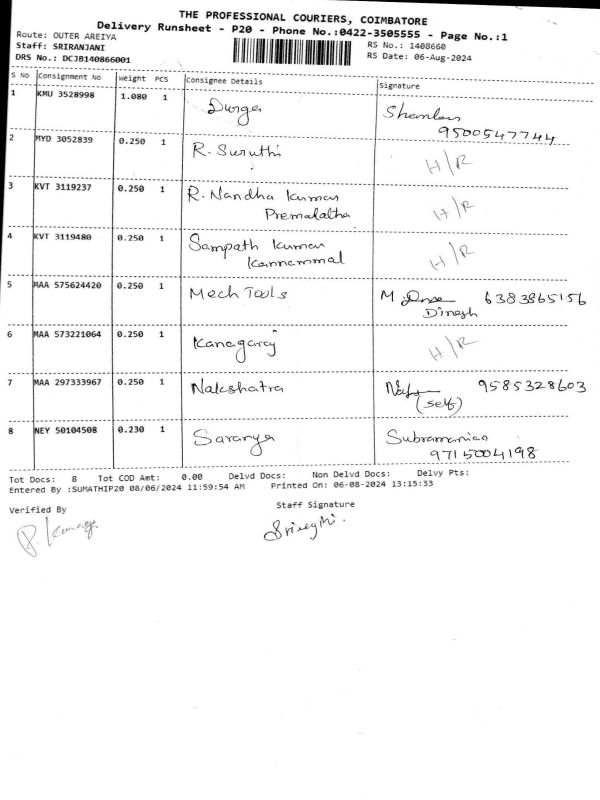 THE PROFESSIONAL COURIERS, COIMBATORE
Delivery Runsheet - P20 - Phone No.:0422-3505555 - Page No.:1
Route: OUTER AREIYA RS No.: 1408660
Staff: SRIRANJANI RS Date: 06-Aug-2024
DRS No.: DCJB140866001
S No Consignment No Weight PCS Consignee Details Signature
1 KMU 3528998 1.080 1 Durga
9500547744
2 MYD 3052839 0.250 1 R. Suruthi H/R
3 KVT 3119237 0.250 1 R. Nandha Kumar H/R
Premalatha
4 KVT 3119480 0.250 1 Sampath Kumar H/R
Kannammal
5 MAA 575624420 0.250 1 Mech Tools M 6383865156
Dinesh
6 MAA 573221064 0.250 1 Kanagaraj H/R
7 MAA 297333967 0.250 1 Nakshatra 9585328603
(self)
8 NEY 50104508 0.230 1 Saranya Subramanian
9715004198
Tot Docs: 8 Tot COD Amt: 0.00 Delvd Docs: Non Delvd Docs: Delvy Pts:
Entered By :SUMATHIP20 08/06/2024 11:59:54 AM Printed On: 06-08-2024 13:15:33
Verified By Staff Signature